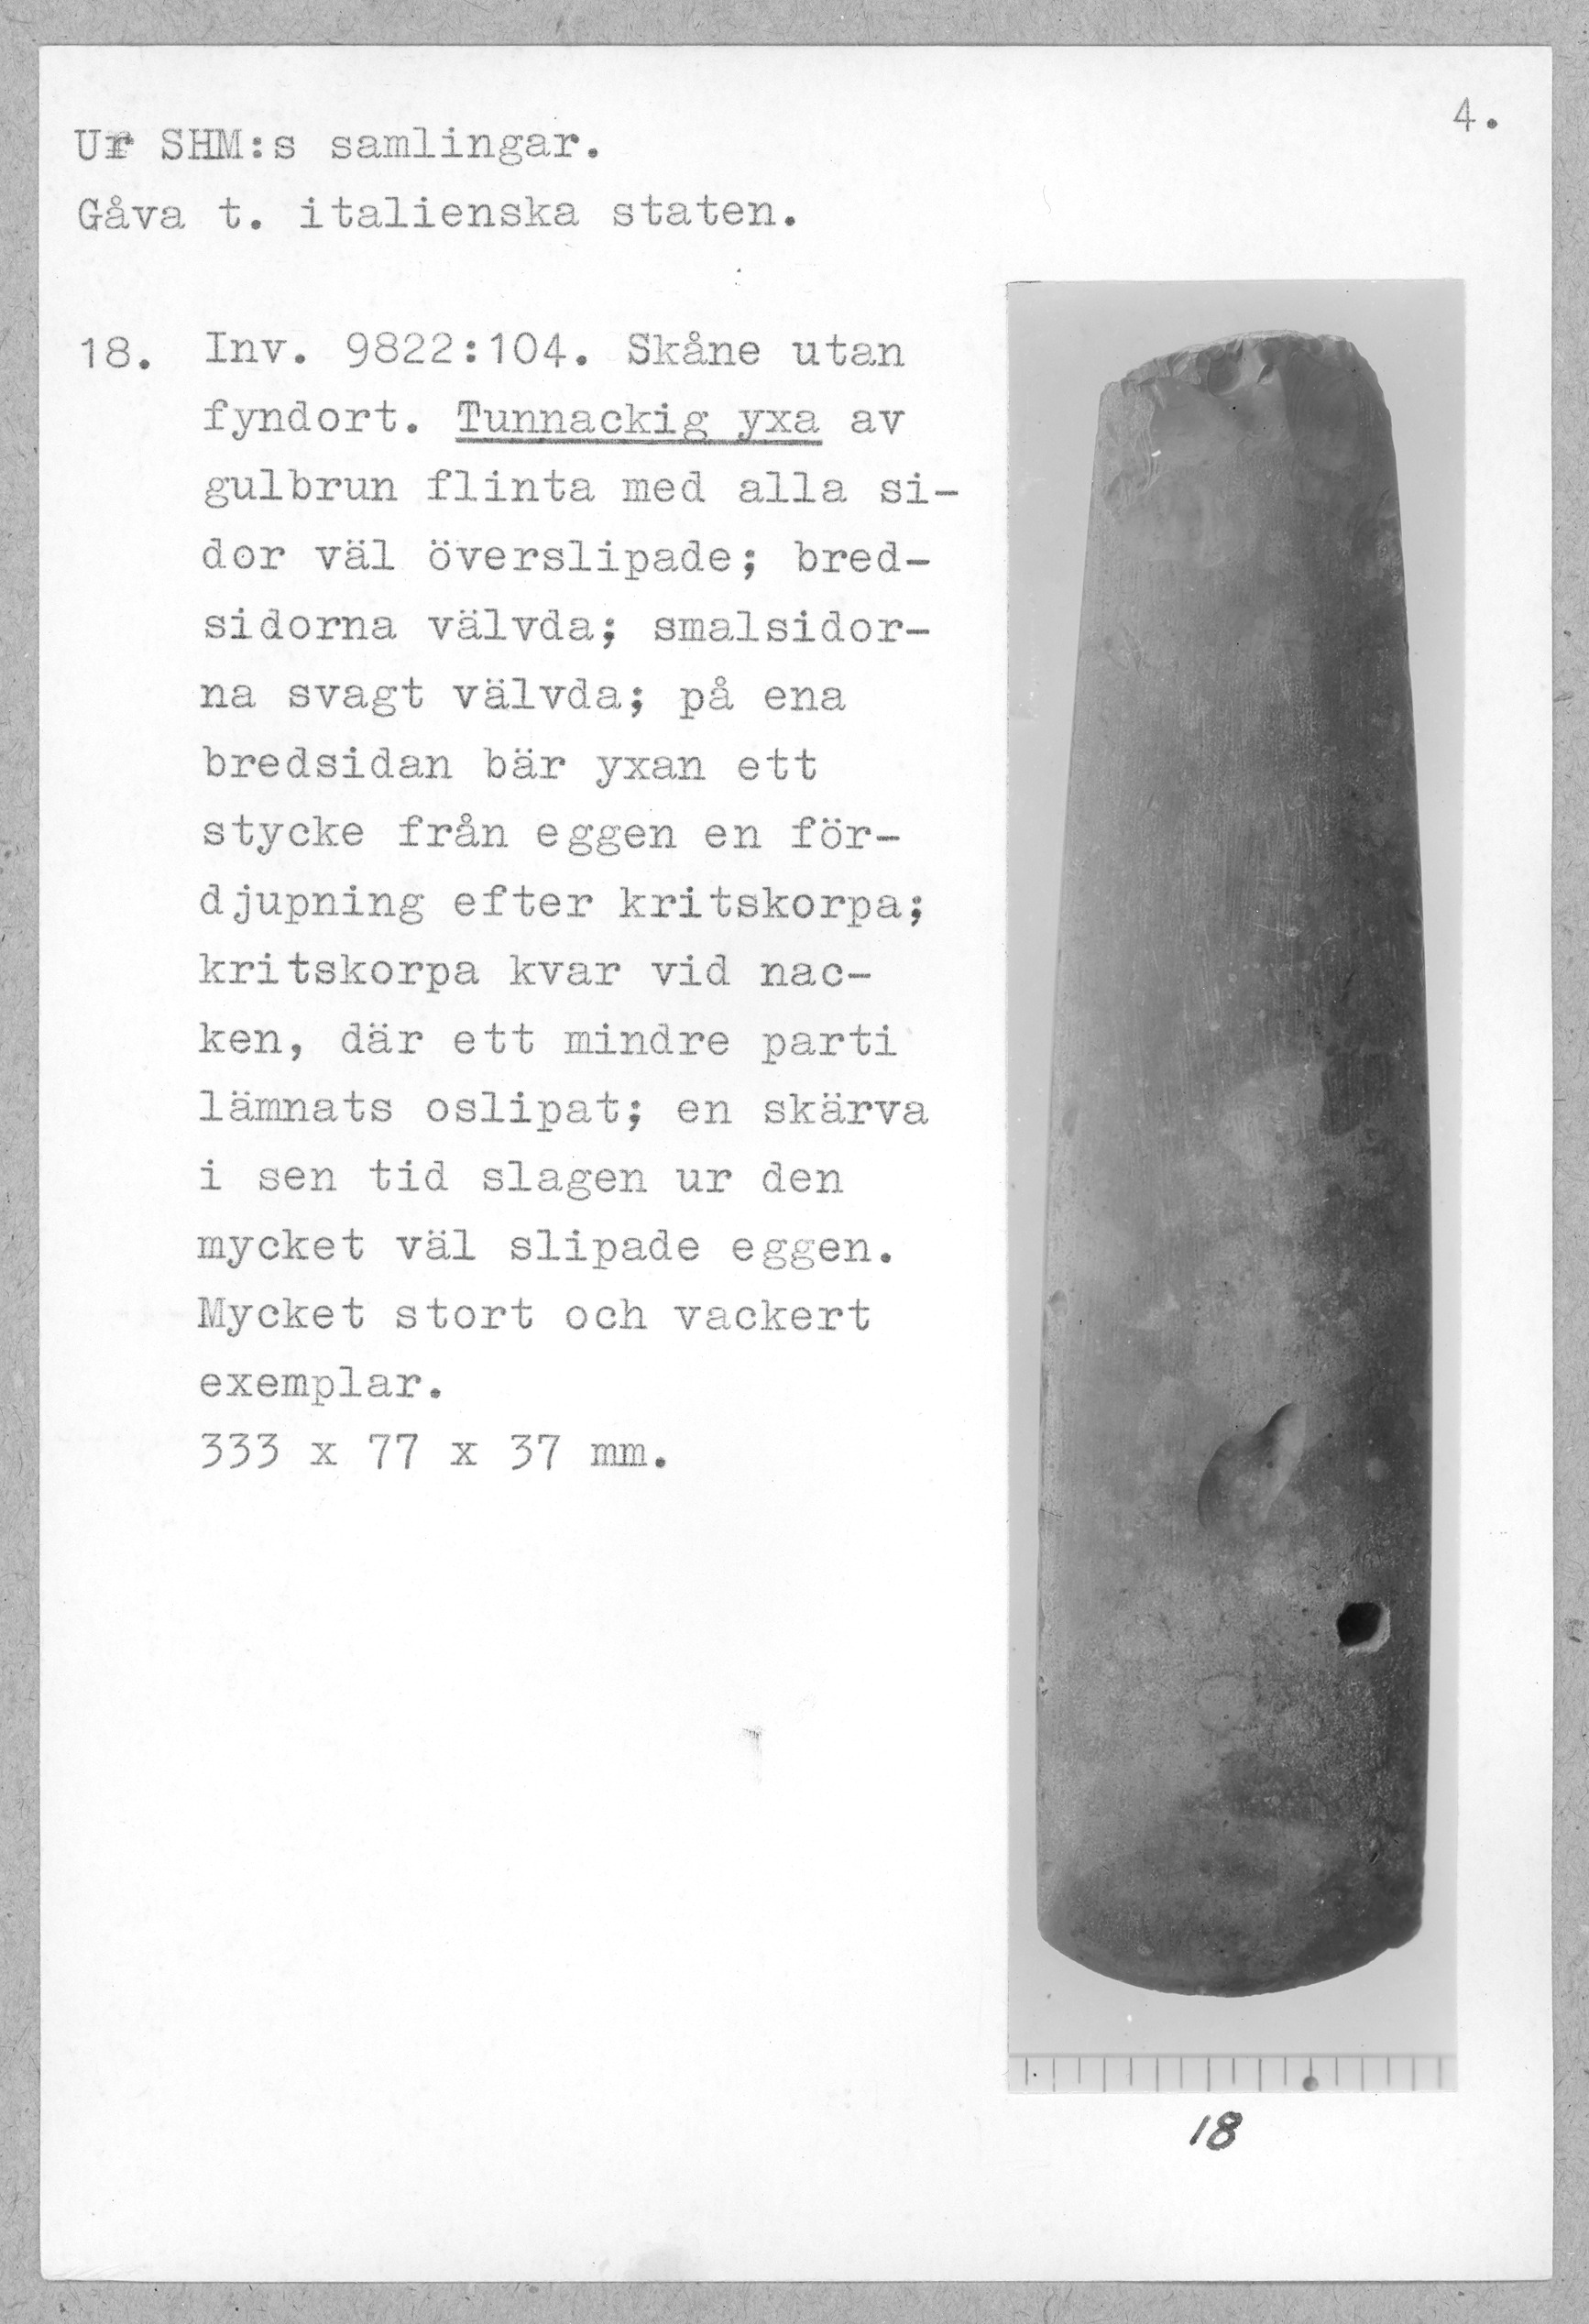 4.
Ur SHM:s samlingar.
Gåva t. italienska staten.
18. Inv. 9822:104. Skåne utan
fyndort. Tunnackig yxa av
gulbrun flinta med alla si-
dor väl överslipade; bred-
sidorna välvda; smalsidor-
na svagt välvda; på ena
bredsidan bär yxan ett
stycke från eggen en för-
djupning efter kritskorpa;
kritskorpa kvar vid nac-
ken, där ett mindre parti
lämnats oslipat; en skärva
i sen tid slagen ur den
mycket väl slipade eggen.
Mycket stort och vackert
exemplar.
333 x 77 x 37 mm.
18